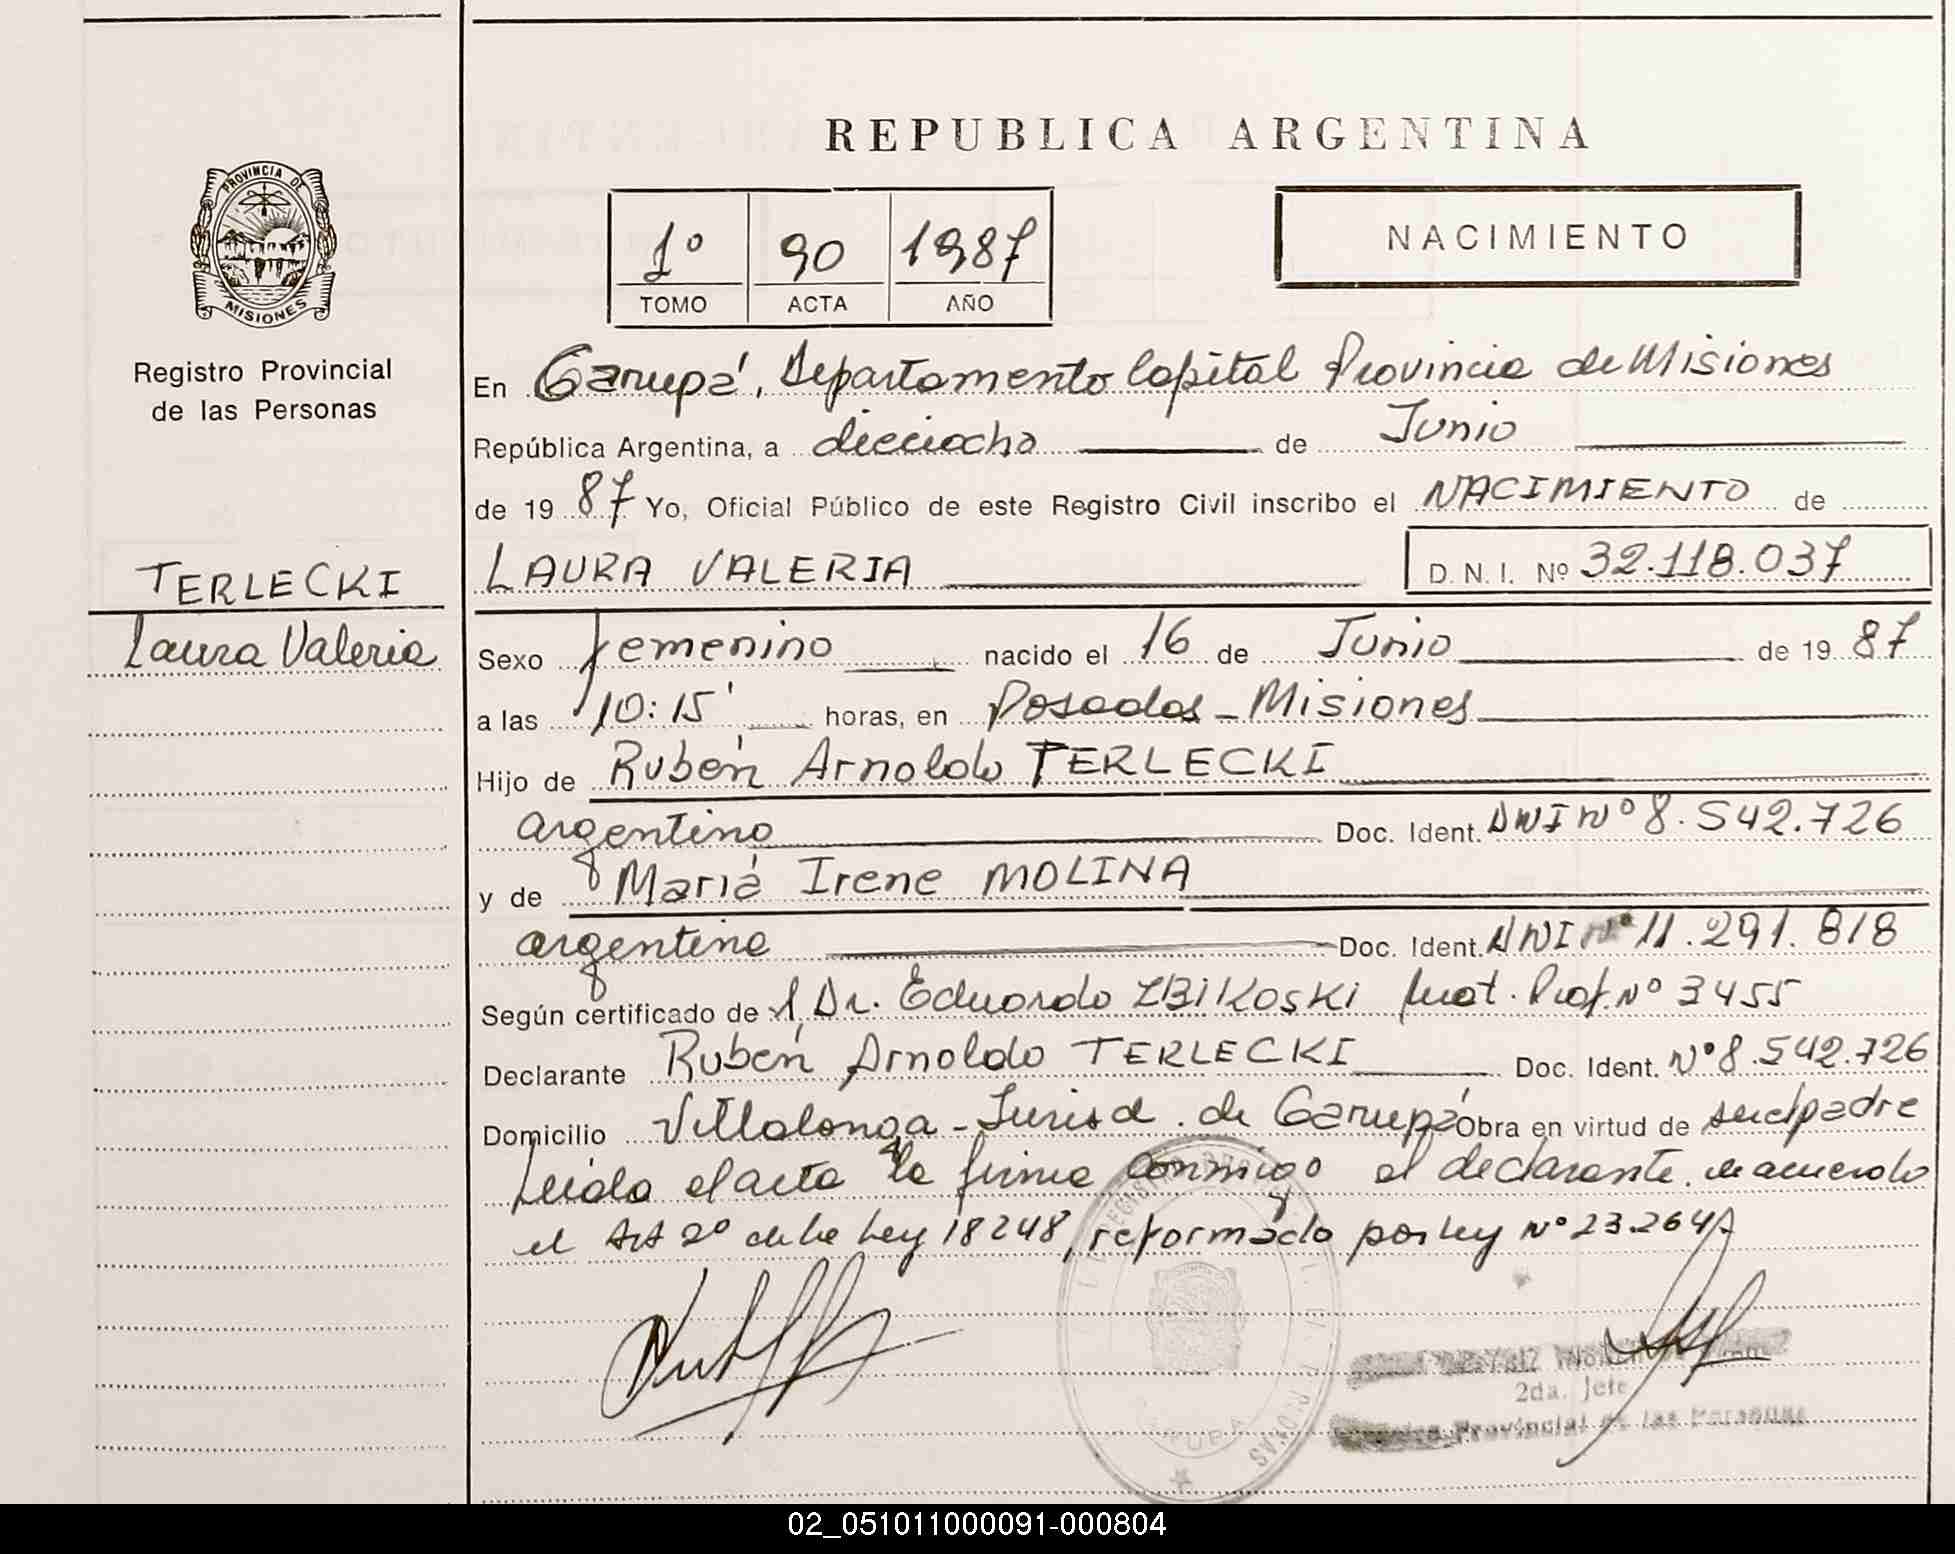 REPUBLICA ARGENTINA
PROVINCIA DE
MISIONES
Registro Provincial
de las Personas
1º 90 1987
TOMO ACTA AÑO
NACIMIENTO
En Garupá, Departamento Capital Provincia de Misiones
República Argentina, a dieciocho de Junio
de 19 87 Yo, Oficial Público de este Registro Civil inscribo el NACIMIENTO de
TERLECKI
LAURA VALERIA D. N. I. Nº 32.118.037
Laura Valeria
Sexo femenino nacido el 16 de Junio de 19 87
a las 10:15' horas, en Posadas - Misiones
Hijo de Rubén Arnoldo TERLECKI
argentino Doc. Ident. DNI Nº 8.542.726
y de María Irene MOLINA
argentina Doc. Ident. DNI Nº 11.291.818
Según certificado de Dr. Eduardo ZBIKOSKI Mat. Prof. Nº 3455
Declarante Rubén Arnoldo TERLECKI Doc. Ident. Nº 8.542.726
Domicilio Villalonga - Jurisd. de Garupá Obra en virtud de ser el padre
Leída el acta la firma conmigo el declarante. de acuerdo
el Art 2º de la Ley 18248, reformado por Ley Nº 23.264
2da. Jefe
Provincial de las Personas
02_051011000091-000804